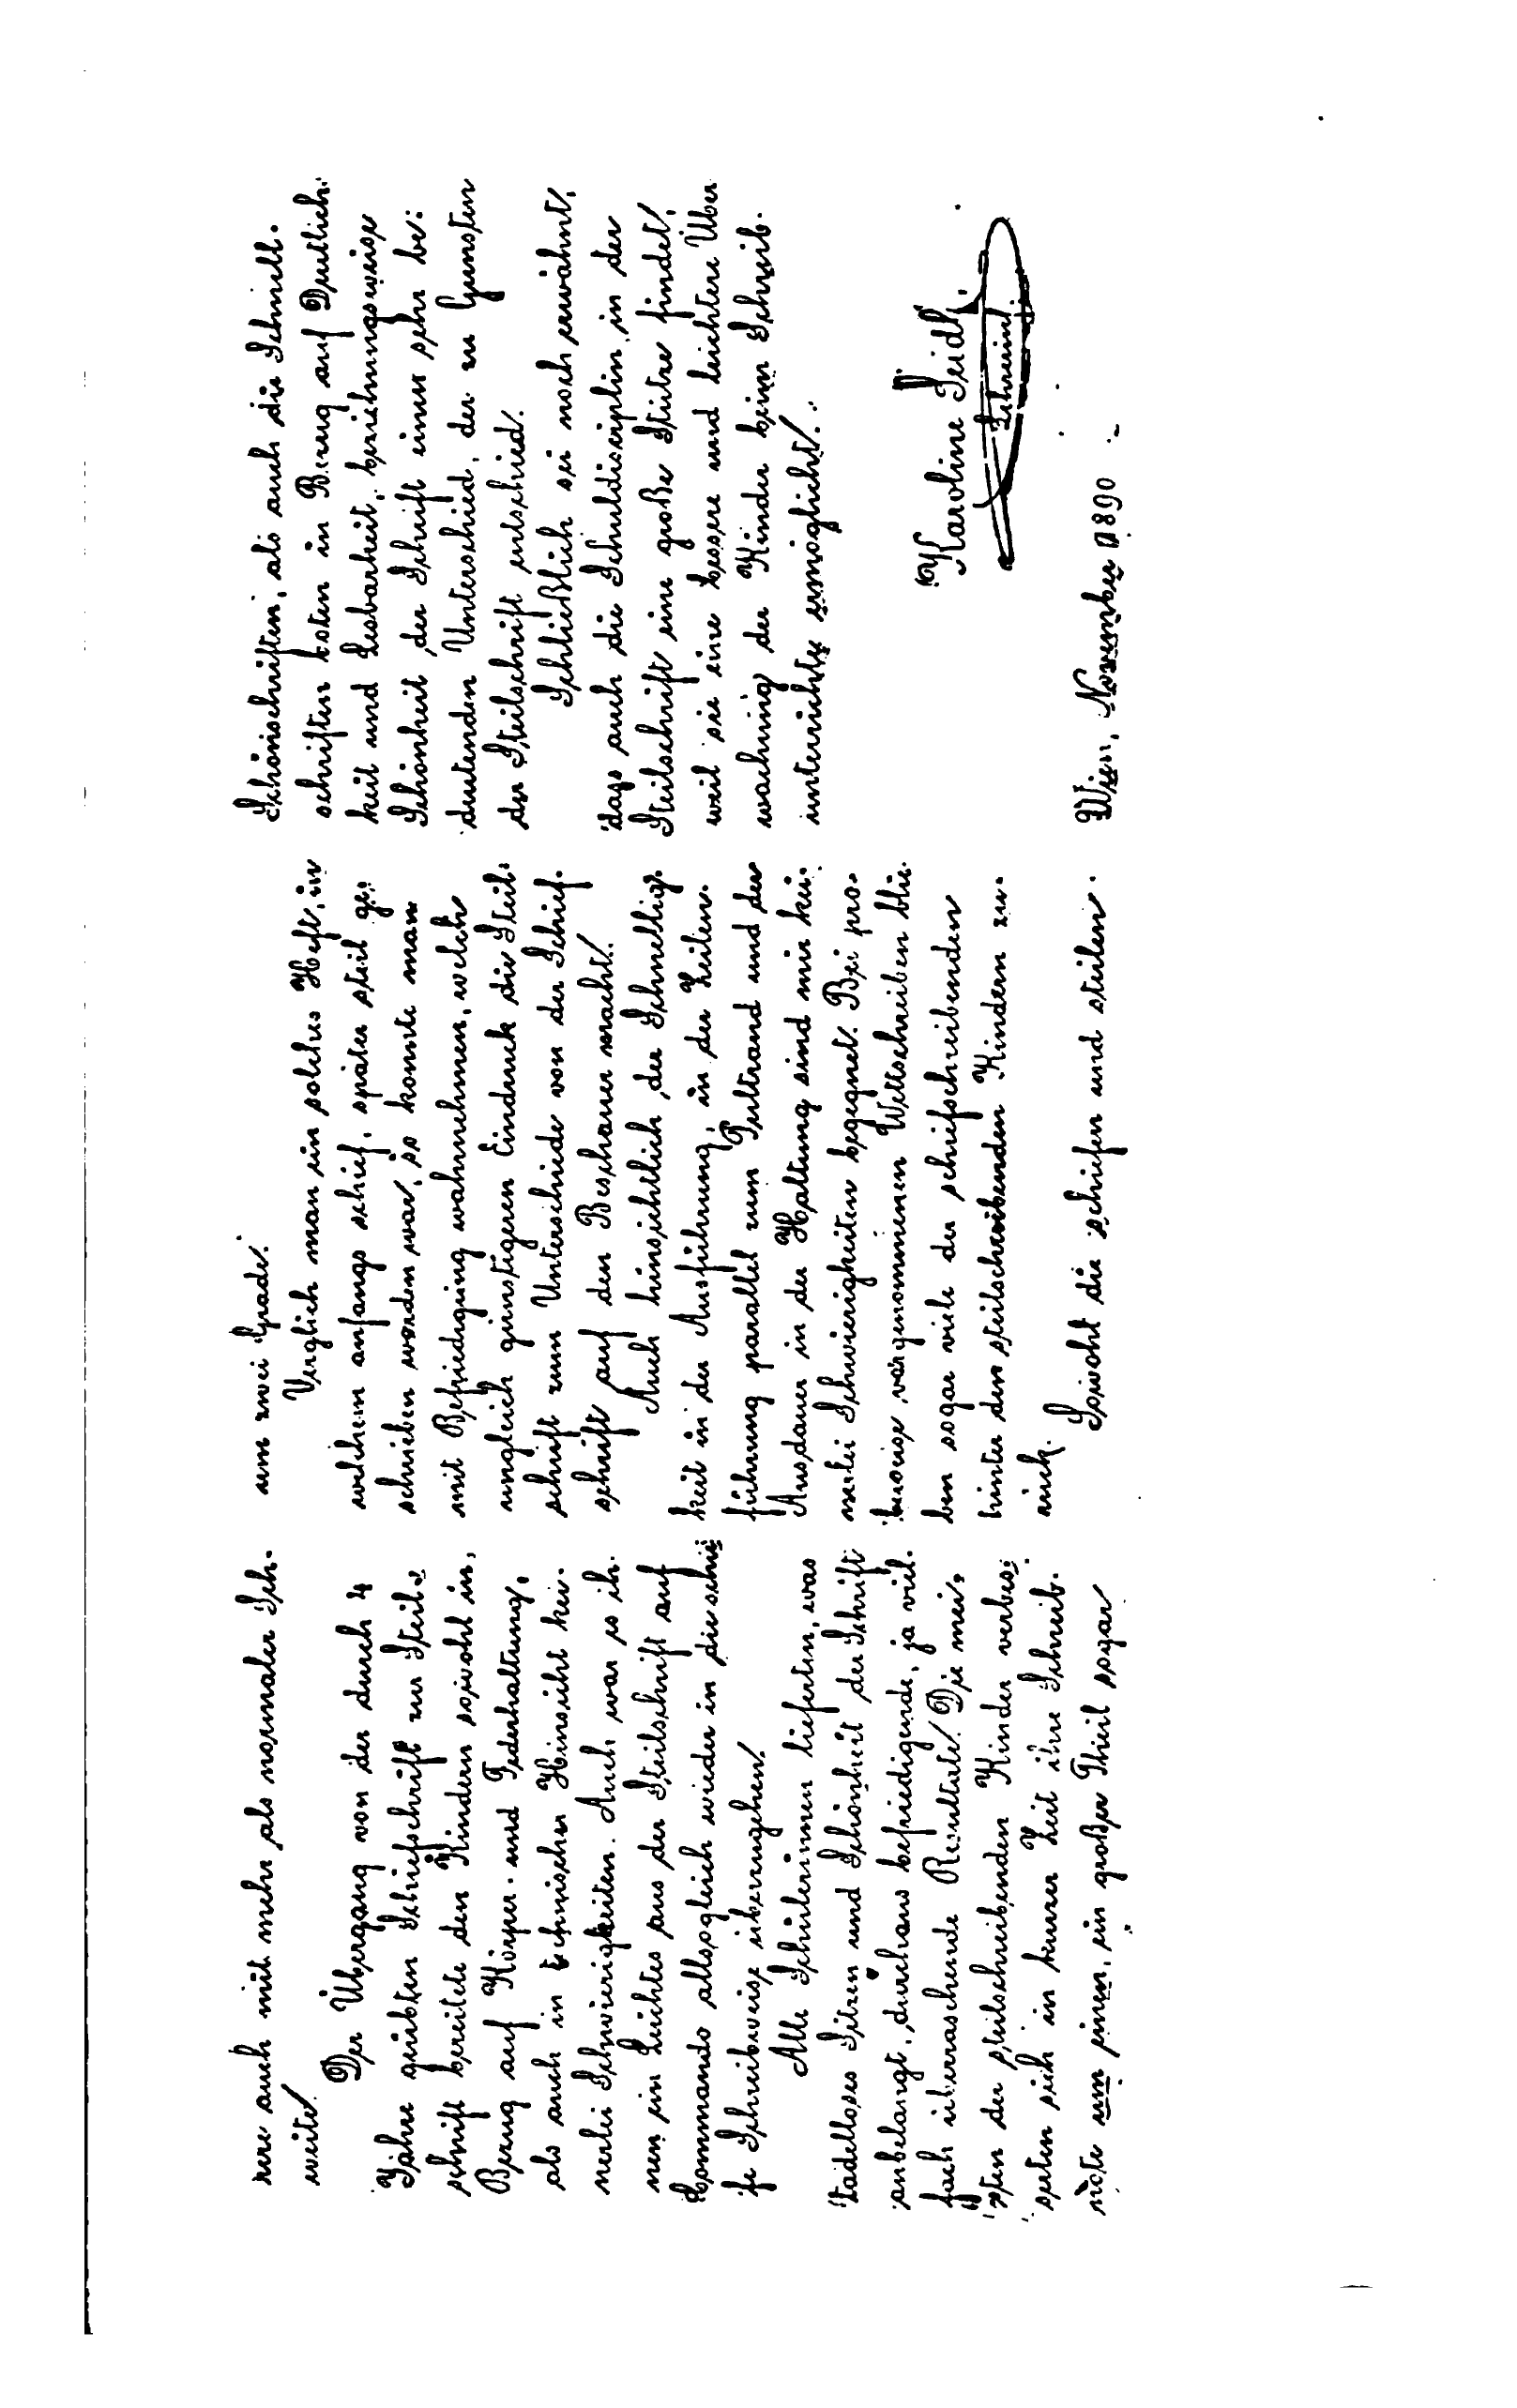 rere auch mit mehr als normaler Seh-
weite.
Der Übergang von der durch 4
Jahre geübten Schiefschrift zur Steil-
schrift bereitete den Kindern sowohl in
Bezug auf Körper- und Federhaltung,
als auch in technischer Hinsicht kei-
nerlei Schwierigkeiten. Auch war es ih-
nen ein Leichtes aus der Steilschrift auf
Commando allsogleich wieder in die schie-
fe Schreibweise überzugehen.
Alle Schülerinnen lieferten, was
tadelloses Sitzen und Schönheit der Schrift
anbelangt, durchaus befriedigende, ja viel-
fach überraschende Resultate. Die mei-
sten der steilschreibenden Kinder verbes-
serten sich in kurzer Zeit ihre Schreib-
note um einen, ein großer Theil sogar
um zwei Grade.
Verglich man ein solches Heft, in
welchem anfangs schief, später steil ge-
schrieben worden war, so konnte man
mit Befriedigung wahrnehmen, welch
ungleich günstigeren Eindruck die Steil-
schrift zum Unterschiede von der Schief-
schrift auf den Beschauer macht.
Auch hinsichtlich der Schnellig-
keit in der Ausführung, in der Zeilen-
führung parallel zum Pultrand und der
Ausdauer in der Haltung sind mir kei-
nerlei Schwierigkeiten begegnet. Bei pro-
beweise vorgenommenen Wettschreiben blie-
ben sogar viele der schiefschreibenden
hinter den steilschreibenden Kindern zu-
rück.
Sowohl die schiefen und steilen
Schönschriften, als auch die Schnell-
schriften boten in Bezug auf Deutlich-
keit und Lesbarkeit, beziehungsweise
Schönheit der Schrift einen sehr be-
deutenden Unterschied, der zu Gunsten
der Steilschrift entschied.
Schließlich sei noch erwähnt,
dass auch die Schuldisciplin in der
Steilschrift eine große Stütze findet,
weil sie eine bessere und leichtere Über-
wachung der Kinder beim Schreib-
unterrichte ermöglicht.
Karoline Seidl,
Lehrerin.
Wien, November 1890.